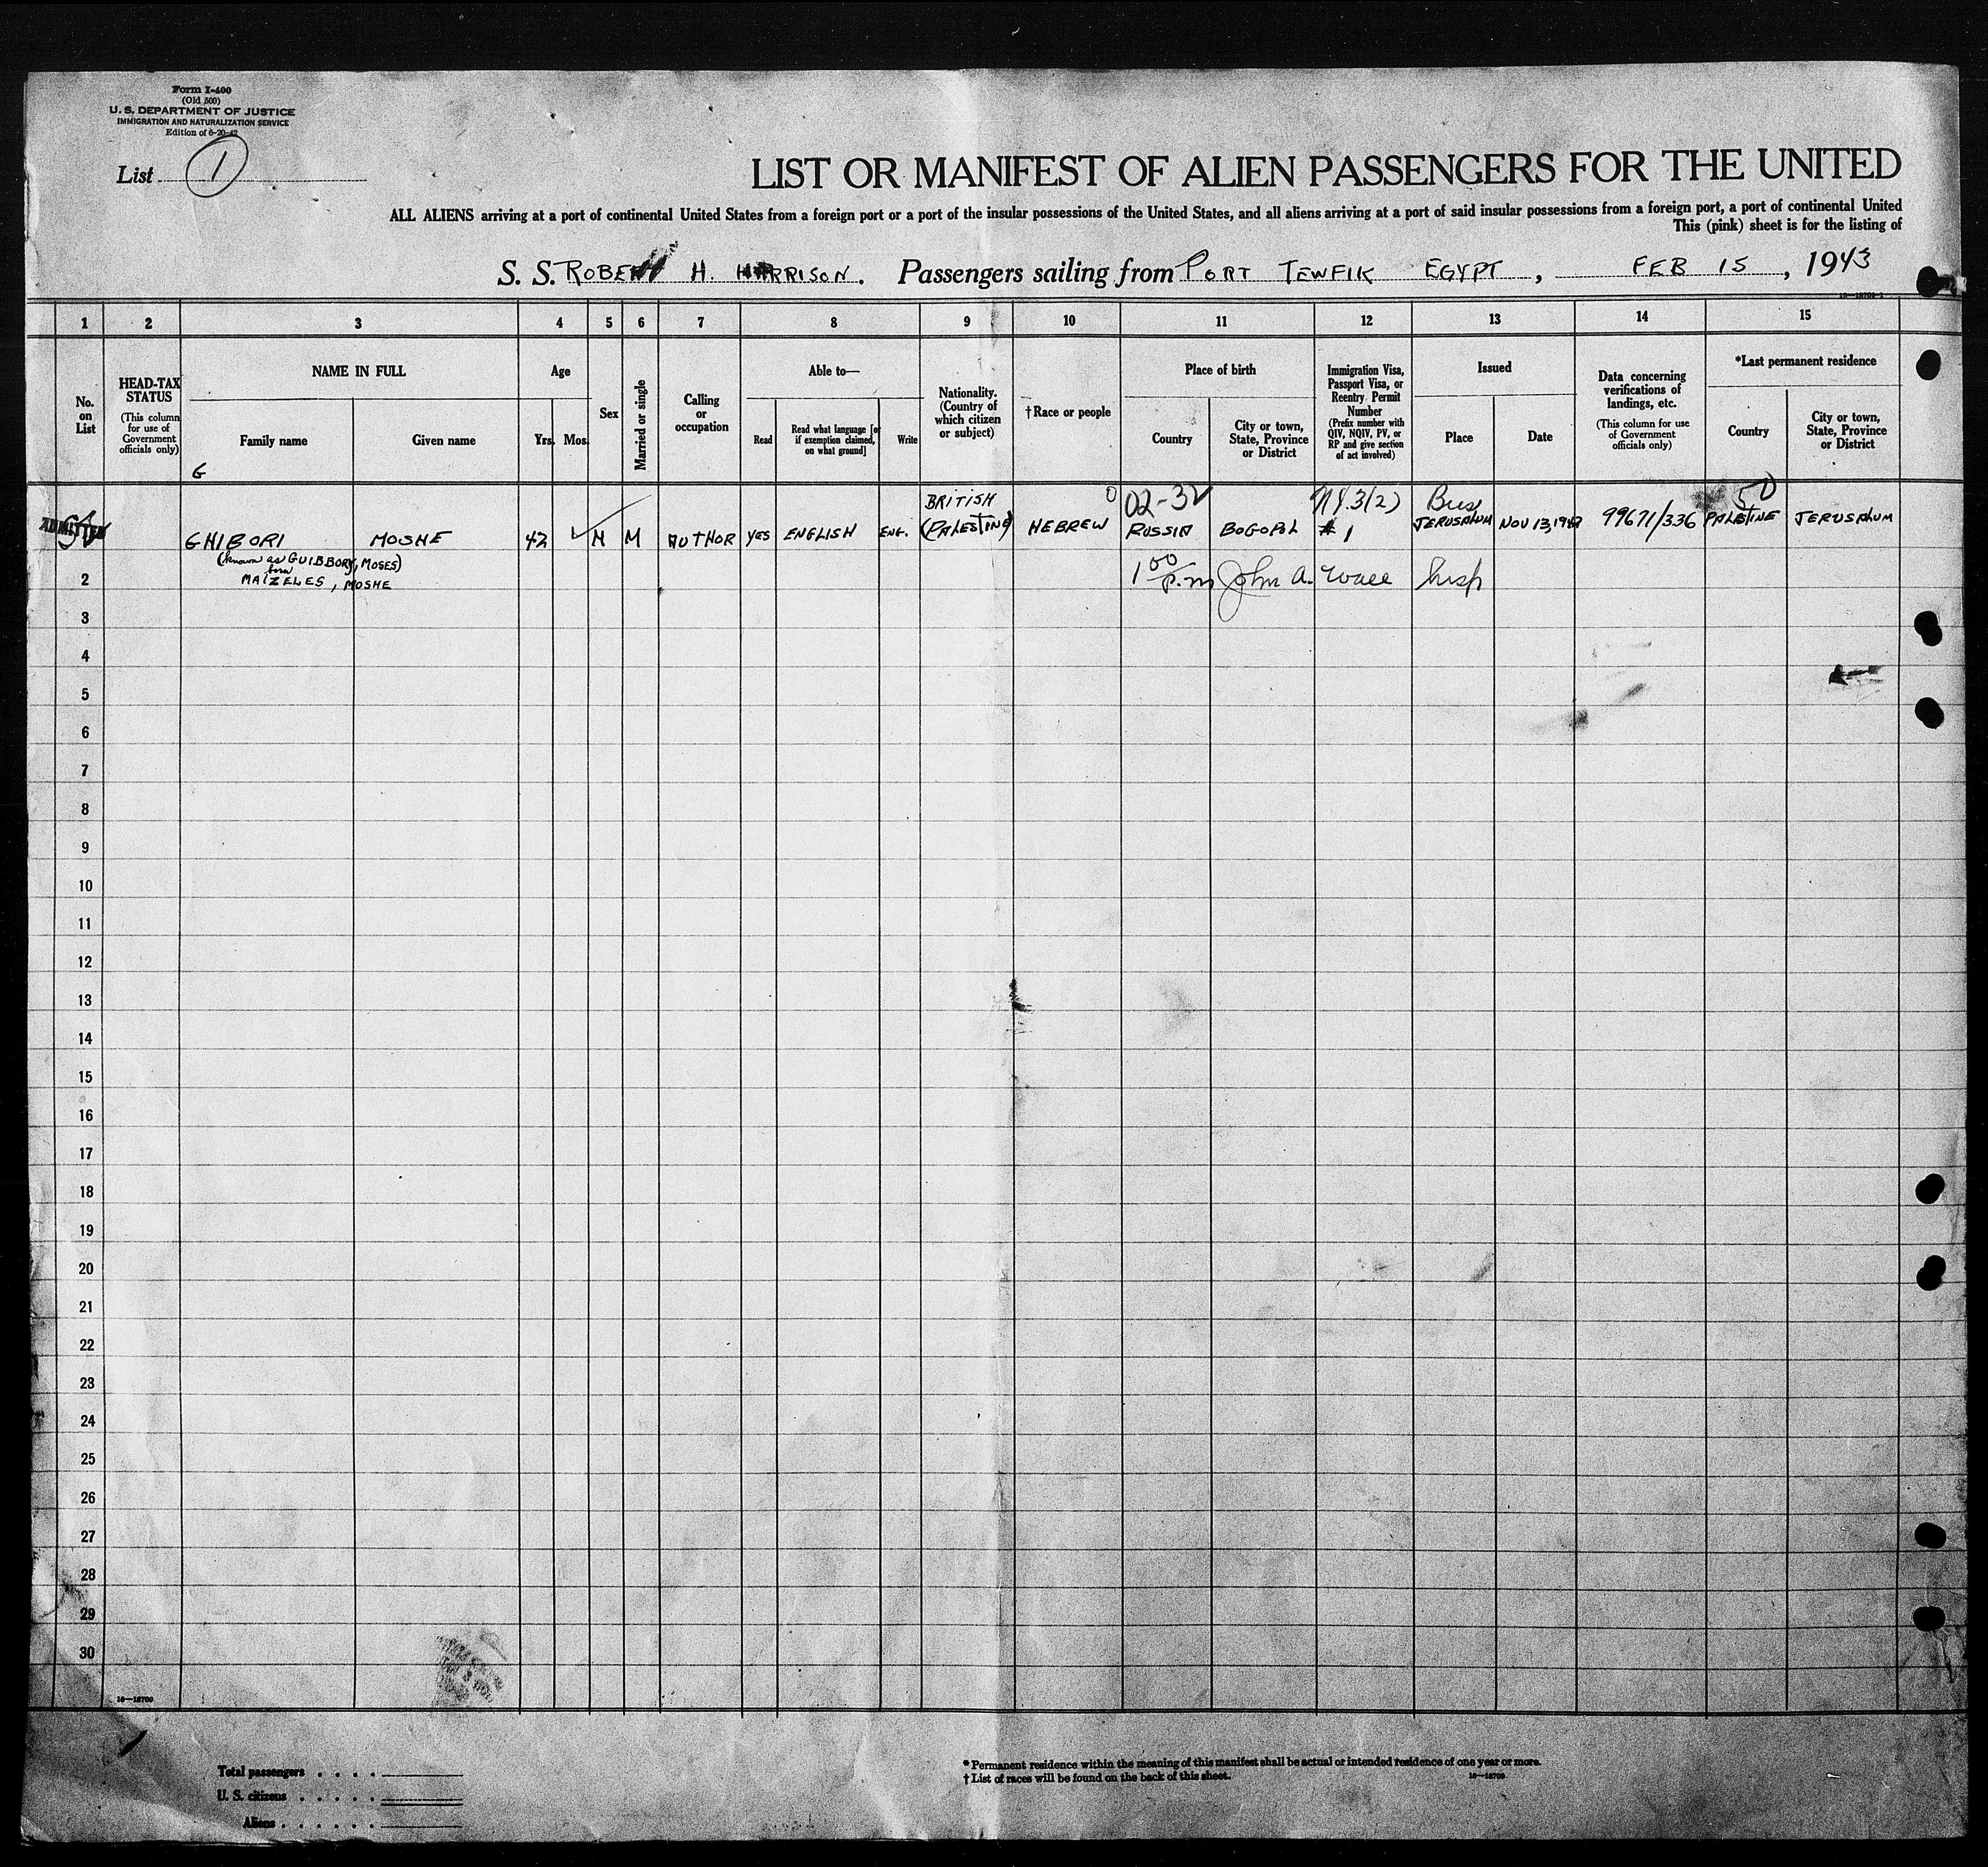 Form I-400
(Old 500)
U. S. DEPARTMENT OF JUSTICE
IMMIGRATION AND NATURALIZATION SERVICE
Edition of 6-20-42
List 1
LIST OR MANIFEST OF ALIEN PASSENGERS FOR THE UNITED
ALL ALIENS arriving at a port of continental United States from a foreign port or a port of the insular possessions of the United States, and all aliens arriving at a port of said insular possessions from a foreign port, a port of continental United
This (pink) sheet is for the listing of
S. S. ROBERT H. HARRISON. Passengers sailing from PORT TEWFIK EGYPT, FEB 15, 1943
1 2 3 4 5 6 7 8 9 10 11 12 13 14 15
No. on List
HEAD-TAX STATUS
(This column for use of Government officials only)
NAME IN FULL
Family name
Given name
G
Age
Yrs. Mos.
Sex
Married or single
Calling or occupation
Able to—
Read
Read what language [or if exemption claimed, on what ground]
Write
Nationality. (Country of which citizen or subject)
†Race or people
Place of birth
Country
City or town, State, Province or District
Immigration Visa, Passport Visa, or Reentry Permit Number
(Prefix number with QIV, NQIV, PV, or RP and give section of act involved)
Issued
Place
Date
Data concerning verifications of landings, etc.
(This column for use of Government officials only)
*Last permanent residence
Country
City or town, State, Province or District
BRITISH 0 02-32 3(2) Bus 50
ADMITTED GHIBORI MOSHE 42 M M AUTHOR YES ENGLISH ENG. (PALESTINE) HEBREW RUSSIA BOGOPOL #1 JERUSALUM NOV 13, 1942 99671/336 PALESTINE JERUSALUM
(known as GUIBBORY, MOSES)
born
MAIZELES, MOSHE
2 1 00 P.m John A. Insp
3
4
5
6
7
8
9
10
11
12
13
14
15
16
17
18
19
20
21
22
23
24
25
26
27
28
29
30
16—18700
Total passengers
U. S. citizens
Aliens
* Permanent residence within the meaning of this manifest shall be actual or intended residence of one year or more.
† List of races will be found on the back of this sheet.